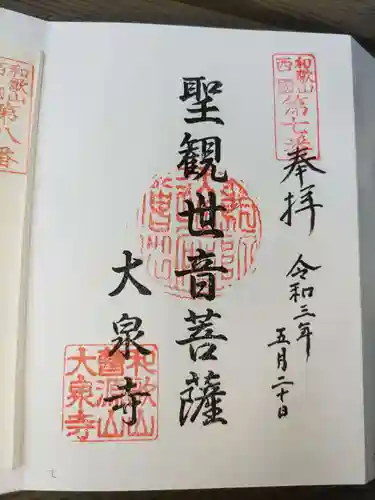 和歌山
西國
第七番
奉拝
令和三年
五月二十日
聖観世音菩薩
大泉寺
和歌山
曹源山
大泉寺
和歌山
西國
第八番
七